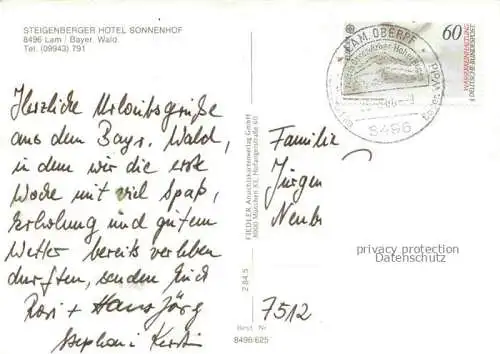 STEIGENBERGER HOTEL SONNENHOF
8496 Lam / Bayer. Wald
Tel. (09943) 791
Herzliche Urlaubsgrüße
aus dem Bayr. Wald,
in dem wir die erste
Woche mit viel Spaß,
Erholung und gutem
Wetter bereits verleben
durften, senden Euch
Rosi + Hans Jörg
Stephani Kerstin
FIEDLER Ansichtskartenverlag GmbH
8000 München 83, Hofangerstraße 60
2 84 5
Best. Nr.
8496/625
LAM, OBERPF.
8496
60
WASSERREINHALTUNG
DEUTSCHE BUNDESPOST
Familie
Jürgen
privacy protection
Datenschutz
7512